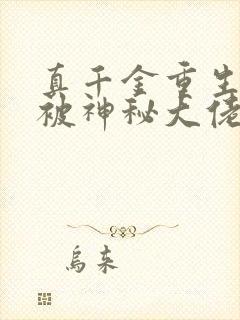 真千金重生
被神秘大佬
乌来